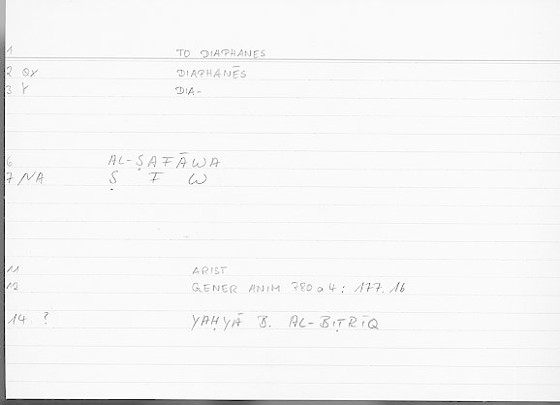 1 TO DIAPHANES
2 QY DIAPHANĒS
3 Y DIA-
6 AL-ṢAFĀWA
7 NA Ṣ F W
11 ARIST
12 GENER ANIM 780 a 4 : 177.16
14 ? YAḤYĀ B. AL-BIṬRĪQ